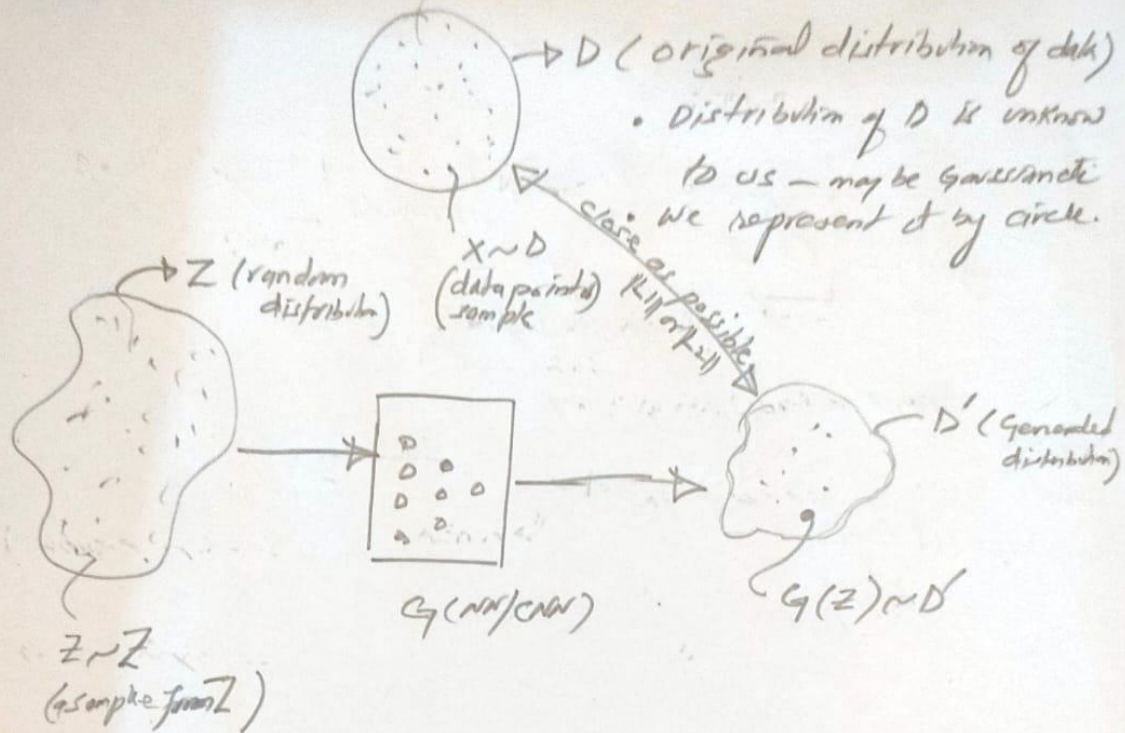 D (original distribution of data)
• Distribution of D is unknow
to us – may be Gaussian etc
• we represent it by circle.
X~D
(data points)
sample
close as possible
||L1|| or ||L2||
Z (random
distribution)
D' (Generated
distribution)
G(NN/CNN)
G(Z)~D'
Z~Z
(a sample from Z)